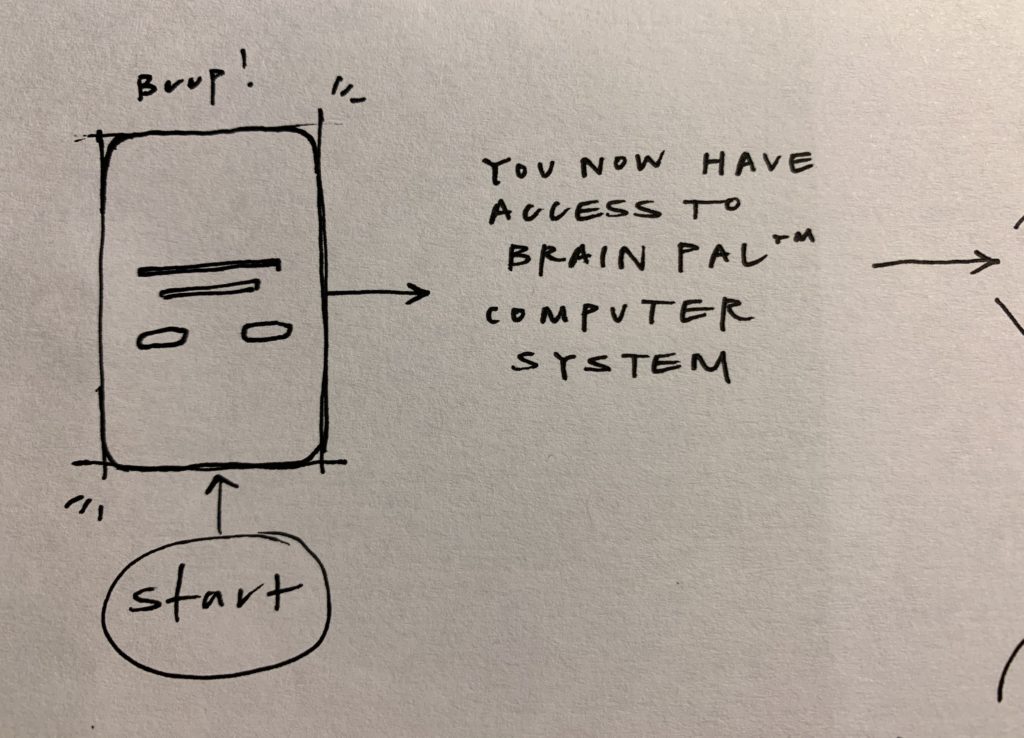 Brrp!
YOU NOW HAVE
ACCESS TO
BRAIN PAL™
COMPUTER
SYSTEM
start